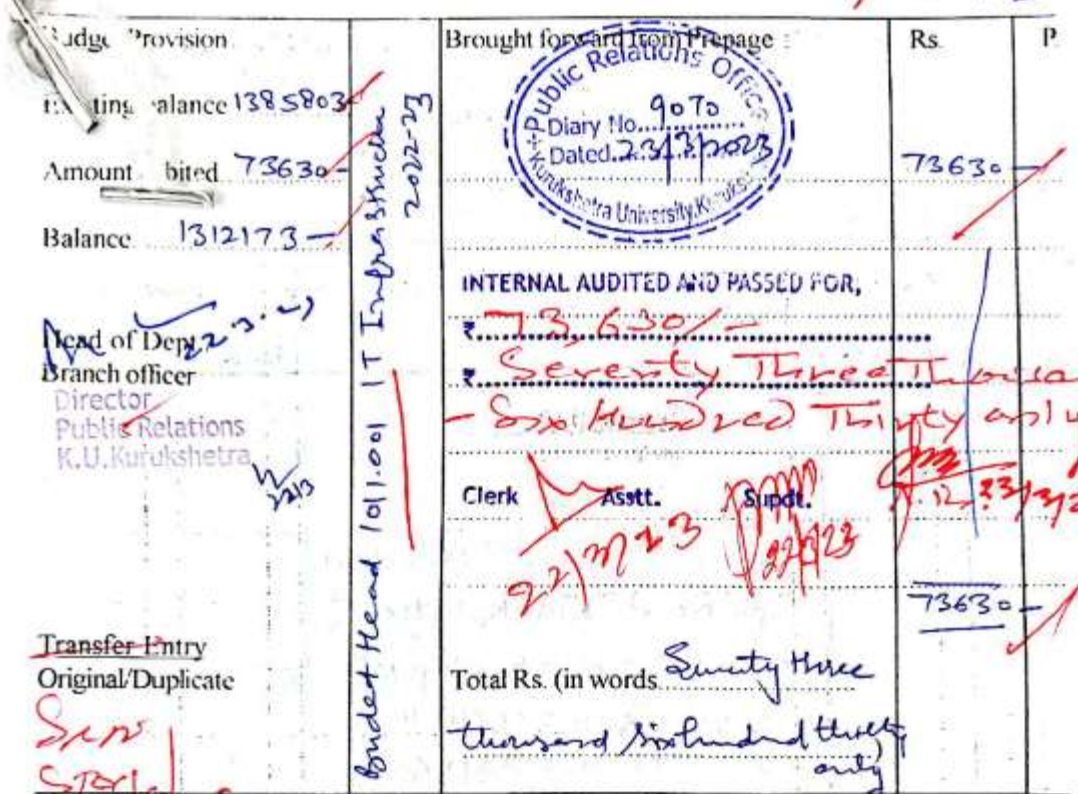 Budge Provision
Existing balance 1385803
Amount bited 73630-
Balance 1312173-
Head of Dep
22.3.
Branch officer
Director
Public Relations
K.U.Kurukshetra
22/3
Transfer Entry
Original/Duplicate
Budget Head 1011.001 IT Infrastructure
2022-23
Brought forward from Prepage : Rs. P.
Public Relations Office
Diary No. 9070
Dated 23/3/2023
Kurukshetra University, Kurukshetra
73630-
INTERNAL AUDITED AND PASSED FOR,
₹ 73,630/-
₹ Seventy Three Thousa
- Six Hundred Thirty only
Clerk Asstt. Supdt.
22/3/23 22/3/23 23/3/2
73630-
Total Rs. (in words Seventy three
thousand six hundred thirty )
only